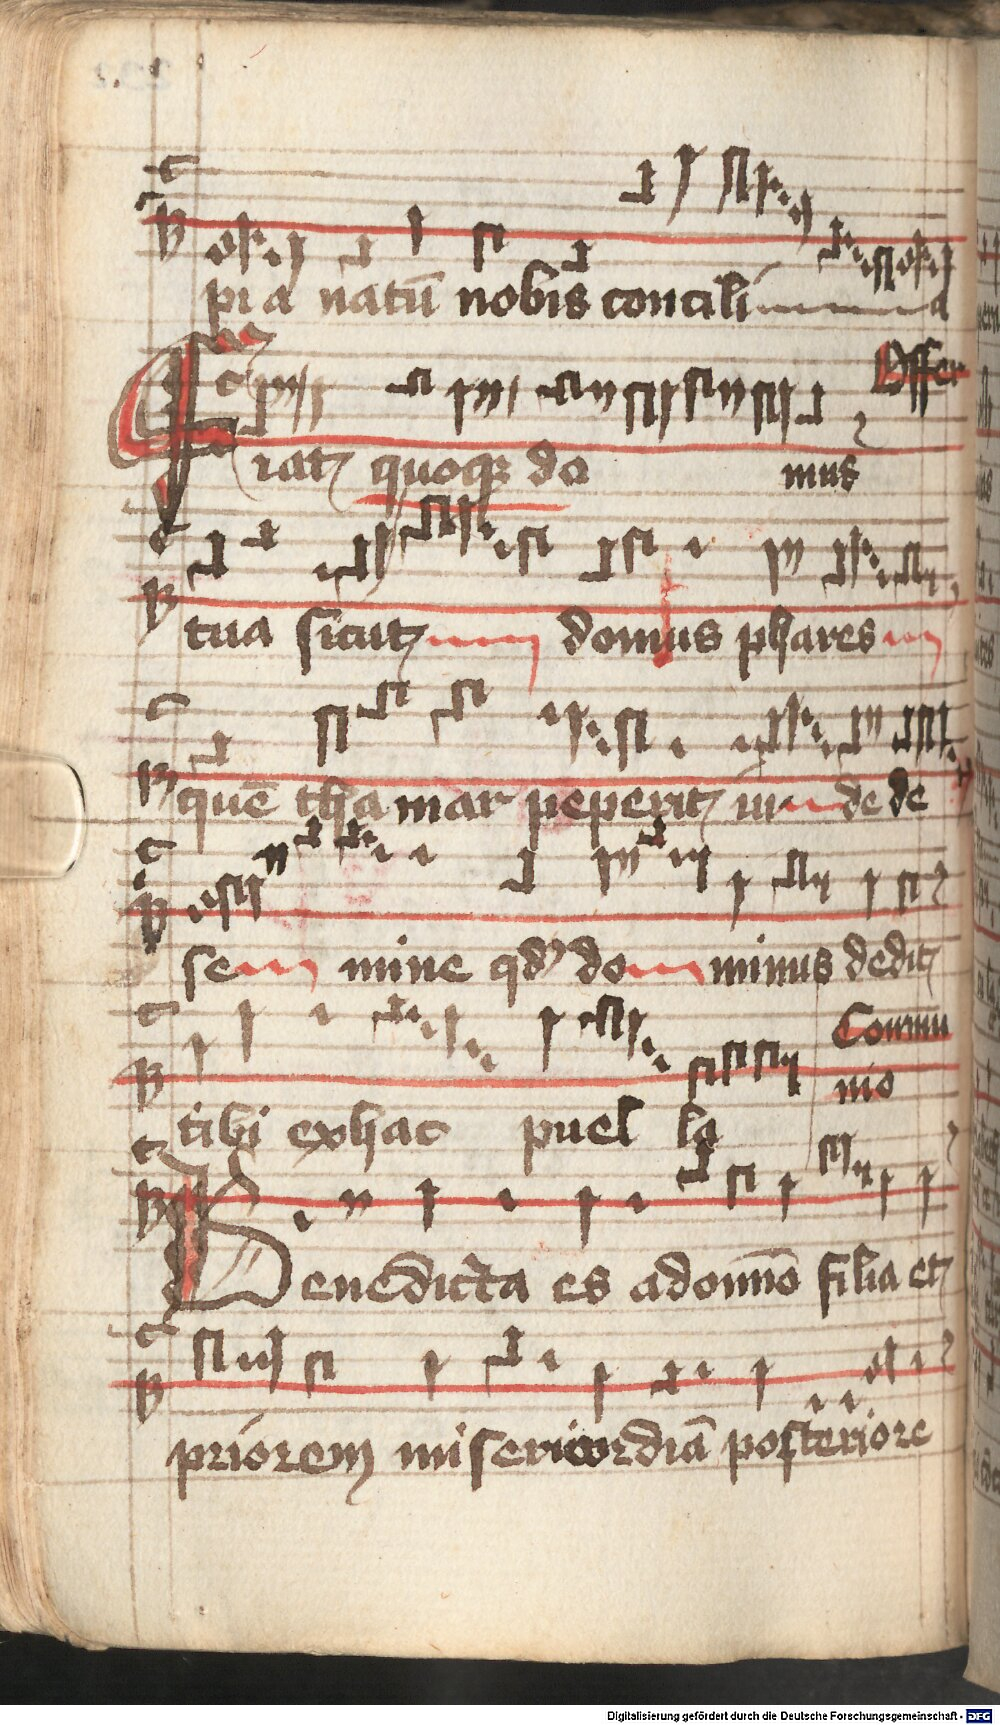 pia natū nobis concili a
Offer
Erat quoqz do mus
tua sicut domus phares
quē tha mar peperit iu de de
se mine qd do minus dedit
Commu
nio
tibi ex hac puel la
Benedicta es a domīo filia et
priorem misericordiā posteriore
Digitalisierung gefördert durch die Deutsche Forschungsgemeinschaft - DFG